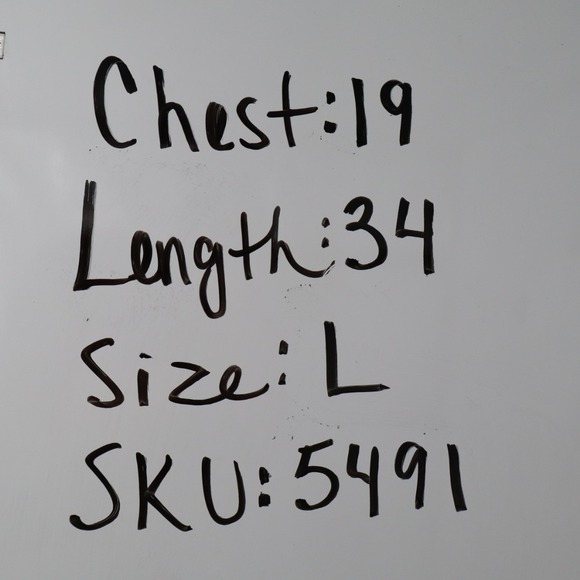 Chest:19
Length:34
Size: L
SKU:5491